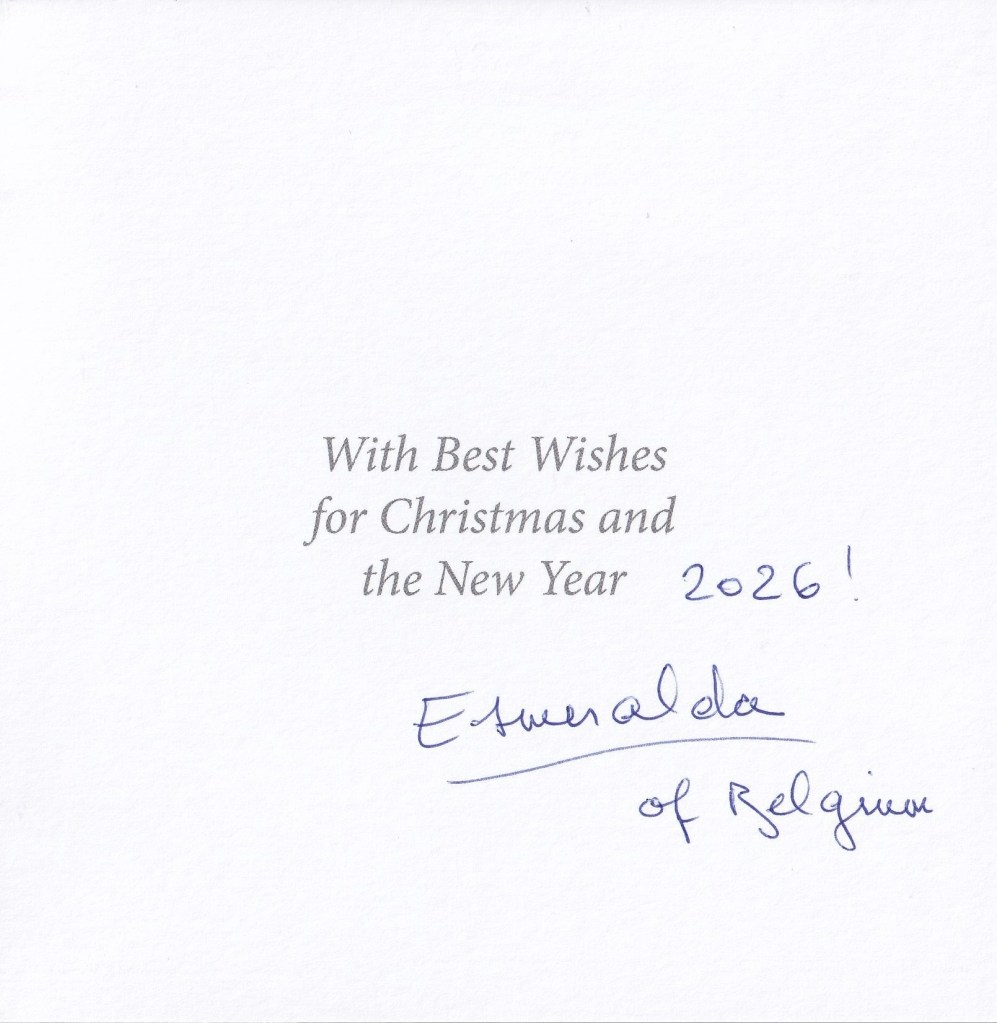 With Best Wishes
for Christmas and
the New Year 2026!
Esmeralda
of Belgium